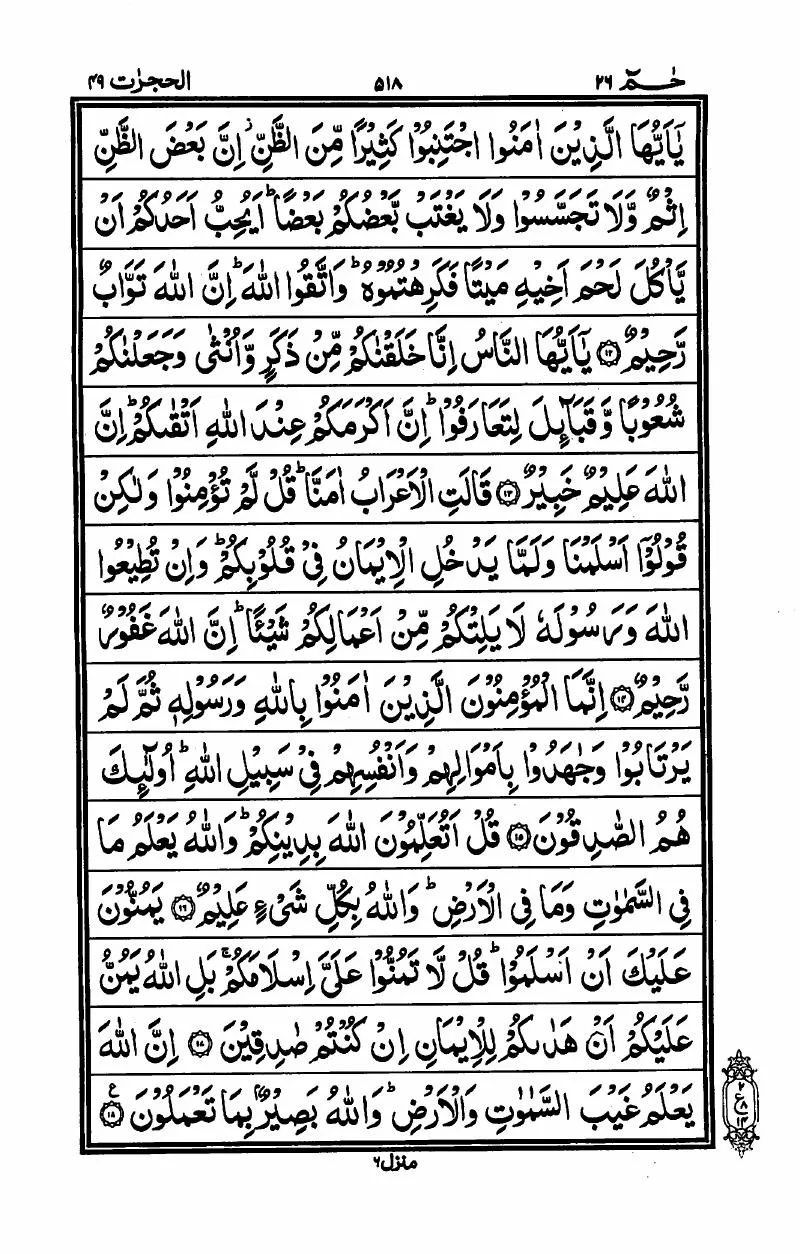 حٰمٓ ۲۶ ۵۱۸ الحجرٰت ۴۹
يٰۤاَيُّهَا الَّذِيْنَ اٰمَنُوا اجْتَنِبُوْا كَثِيْرًا مِّنَ الظَّنِّ ؗ اِنَّ بَعْضَ الظَّنِّ
اِثْمٌ وَّلَا تَجَسَّسُوْا وَلَا يَغْتَبْ بَّعْضُكُمْ بَعْضًا ؕ اَيُحِبُّ اَحَدُكُمْ اَنْ
يَّاْكُلَ لَحْمَ اَخِيْهِ مَيْتًا فَكَرِهْتُمُوْهُ ؕ وَاتَّقُوا اللّٰهَ ؕ اِنَّ اللّٰهَ تَوَّابٌ
رَّحِيْمٌ ۝۱۲ يٰۤاَيُّهَا النَّاسُ اِنَّا خَلَقْنٰكُمْ مِّنْ ذَكَرٍ وَّاُنْثٰى وَجَعَلْنٰكُمْ
شُعُوْبًا وَّقَبَآئِلَ لِتَعَارَفُوْا ؕ اِنَّ اَكْرَمَكُمْ عِنْدَ اللّٰهِ اَتْقٰىكُمْ ؕ اِنَّ
اللّٰهَ عَلِيْمٌ خَبِيْرٌ ۝۱۳ قَالَتِ الْاَعْرَابُ اٰمَنَّا ؕ قُلْ لَّمْ تُؤْمِنُوْا وَلٰكِنْ
قُوْلُوْۤا اَسْلَمْنَا وَلَمَّا يَدْخُلِ الْاِيْمَانُ فِيْ قُلُوْبِكُمْ ؕ وَاِنْ تُطِيْعُوا
اللّٰهَ وَرَسُوْلَهٗ لَا يَلِتْكُمْ مِّنْ اَعْمَالِكُمْ شَيْـًٔا ؕ اِنَّ اللّٰهَ غَفُوْرٌ
رَّحِيْمٌ ۝۱۴ اِنَّمَا الْمُؤْمِنُوْنَ الَّذِيْنَ اٰمَنُوْا بِاللّٰهِ وَرَسُوْلِهٖ ثُمَّ لَمْ
يَرْتَابُوْا وَجٰهَدُوْا بِاَمْوَالِهِمْ وَاَنْفُسِهِمْ فِيْ سَبِيْلِ اللّٰهِ ؕ اُولٰٓئِكَ
هُمُ الصّٰدِقُوْنَ ۝۱۵ قُلْ اَتُعَلِّمُوْنَ اللّٰهَ بِدِيْنِكُمْ ؕ وَاللّٰهُ يَعْلَمُ مَا
فِي السَّمٰوٰتِ وَمَا فِي الْاَرْضِ ؕ وَاللّٰهُ بِكُلِّ شَيْءٍ عَلِيْمٌ ۝۱۶ يَمُنُّوْنَ
عَلَيْكَ اَنْ اَسْلَمُوْا ؕ قُلْ لَّا تَمُنُّوْا عَلَيَّ اِسْلَامَكُمْ ۚ بَلِ اللّٰهُ يَمُنُّ
عَلَيْكُمْ اَنْ هَدٰىكُمْ لِلْاِيْمَانِ اِنْ كُنْتُمْ صٰدِقِيْنَ ۝۱۷ اِنَّ اللّٰهَ
يَعْلَمُ غَيْبَ السَّمٰوٰتِ وَالْاَرْضِ ؕ وَاللّٰهُ بَصِيْرٌۢ بِمَا تَعْمَلُوْنَ ۝۱۸ ع
۲
ع ۸
۱۴
منزل ۶